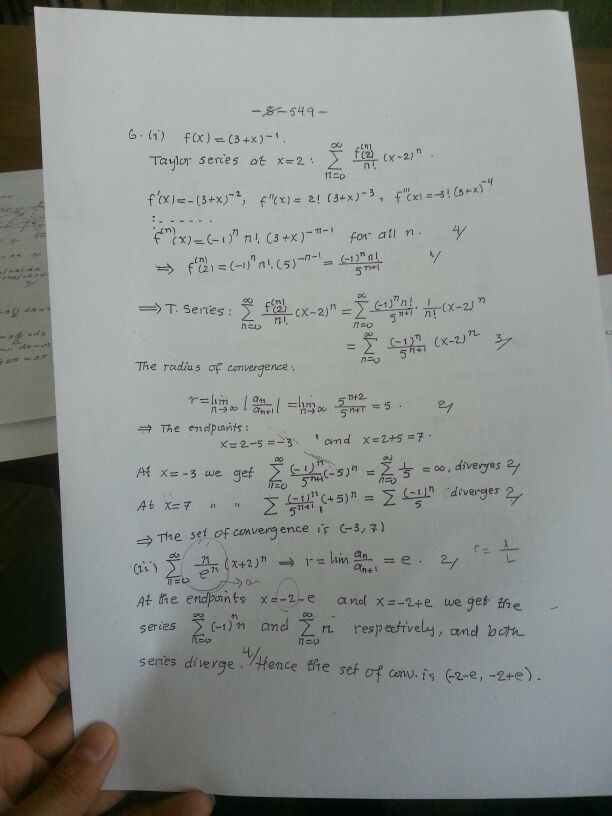 -8-549-
6.(i) f(x)=(3+x)^{-1}.
Taylor series at x=2: \sum_{n=0}^{\infty} \frac{f^{(n)}(2)}{n!}(x-2)^n.
f'(x)=-(3+x)^{-2}, f''(x)=2!(3+x)^{-3}, f'''(x)=-3!(3+x)^{-4}
:......
f^{(n)}(x)=(-1)^n n!.(3+x)^{-n-1} for all n. 4/
⇒ f^{(n)}(2)=(-1)^n n!.(5)^{-n-1}=\frac{(-1)^n n!}{5^{n+1}}
⇒ T. Series: \sum_{n=0}^{\infty} \frac{f^{(n)}(2)}{n!}(x-2)^n = \sum_{n=0}^{\infty} \frac{(-1)^n n!}{5^{n+1}} \cdot \frac{1}{n!}(x-2)^n
= \sum_{n=0}^{\infty} \frac{(-1)^n}{5^{n+1}} (x-2)^n 3/
The radius of convergence:
r=\lim_{n→∞} |\frac{a_n}{a_{n+1}}| = \lim_{n→∞} \frac{5^{n+2}}{5^{n+1}} = 5. 2/
⇒ The endpoints:
x=2-5=-3 , and x=2+5=7.
At x=-3 we get \sum_{n=0}^{\infty} \frac{(-1)^n}{5^{n+1}}(-5)^n = \sum_{n=0}^{\infty} \frac{1}{5} = ∞, diverges 2/
At x=7 " " \sum \frac{(-1)^n}{5^{n+1}}(+5)^n = \sum \frac{(-1)^n}{5} diverges 2/
⇒ The set of convergence is (-3,7)
(ii) \sum_{n=0}^{\infty} \frac{n}{e^n}(x+2)^n ⇒ r=lim \frac{a_n}{a_{n+1}} = e. 2/ r=\frac{1}{L}
→ an
At the endpoints x=-2-e and x=-2+e we get the
series \sum_{n=0}^{\infty} (-1)^n n and \sum_{n=0}^{\infty} n respectively, and both
series diverge. 4/ Hence the set of conv. is (-2-e, -2+e).